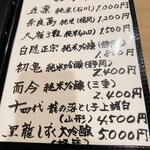 五凛 純米(石川) 1,000円
奈良萬 純米(福岡) 1,200円
大嶺3粒 純米(山口) 1,500円
白隠正宗 純米吟醸(静岡)
1,800円
初亀 純米吟醸(静岡)
2,400円
而今 純米吟醸(三重)
2,400円
十四代 龍の落とし子上諸白
(山形) 4,500円
黒龍しずく 大吟醸
5,000円